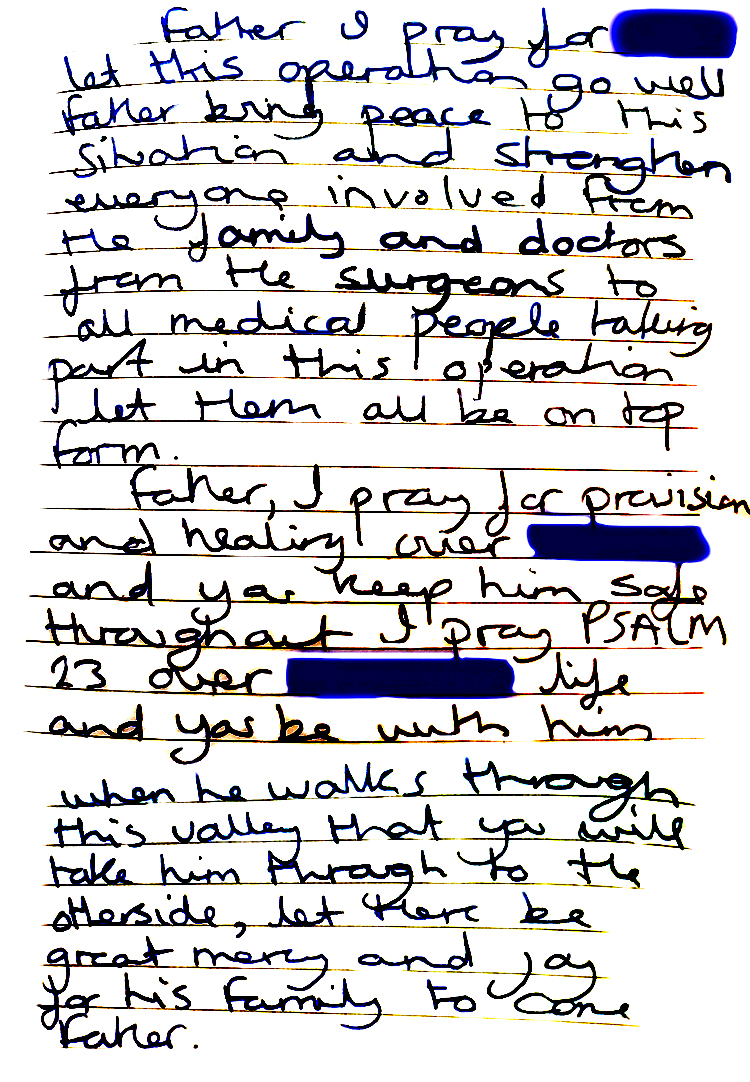 Father I pray for
let this operation go well
father bring peace to this
situation and strengthen
everyone involved from
the family and doctors
from the surgeons to
all medical people taking
part in this operation
let them all be on top
form.
Father, I pray for provision
and healing over
and you keep him safe
throughout I pray PSALM
23 over life
and you be with him
when he walks through
this valley that you will
take him through to the
otherside, let there be
great mercy and joy
for his family to come
Father.